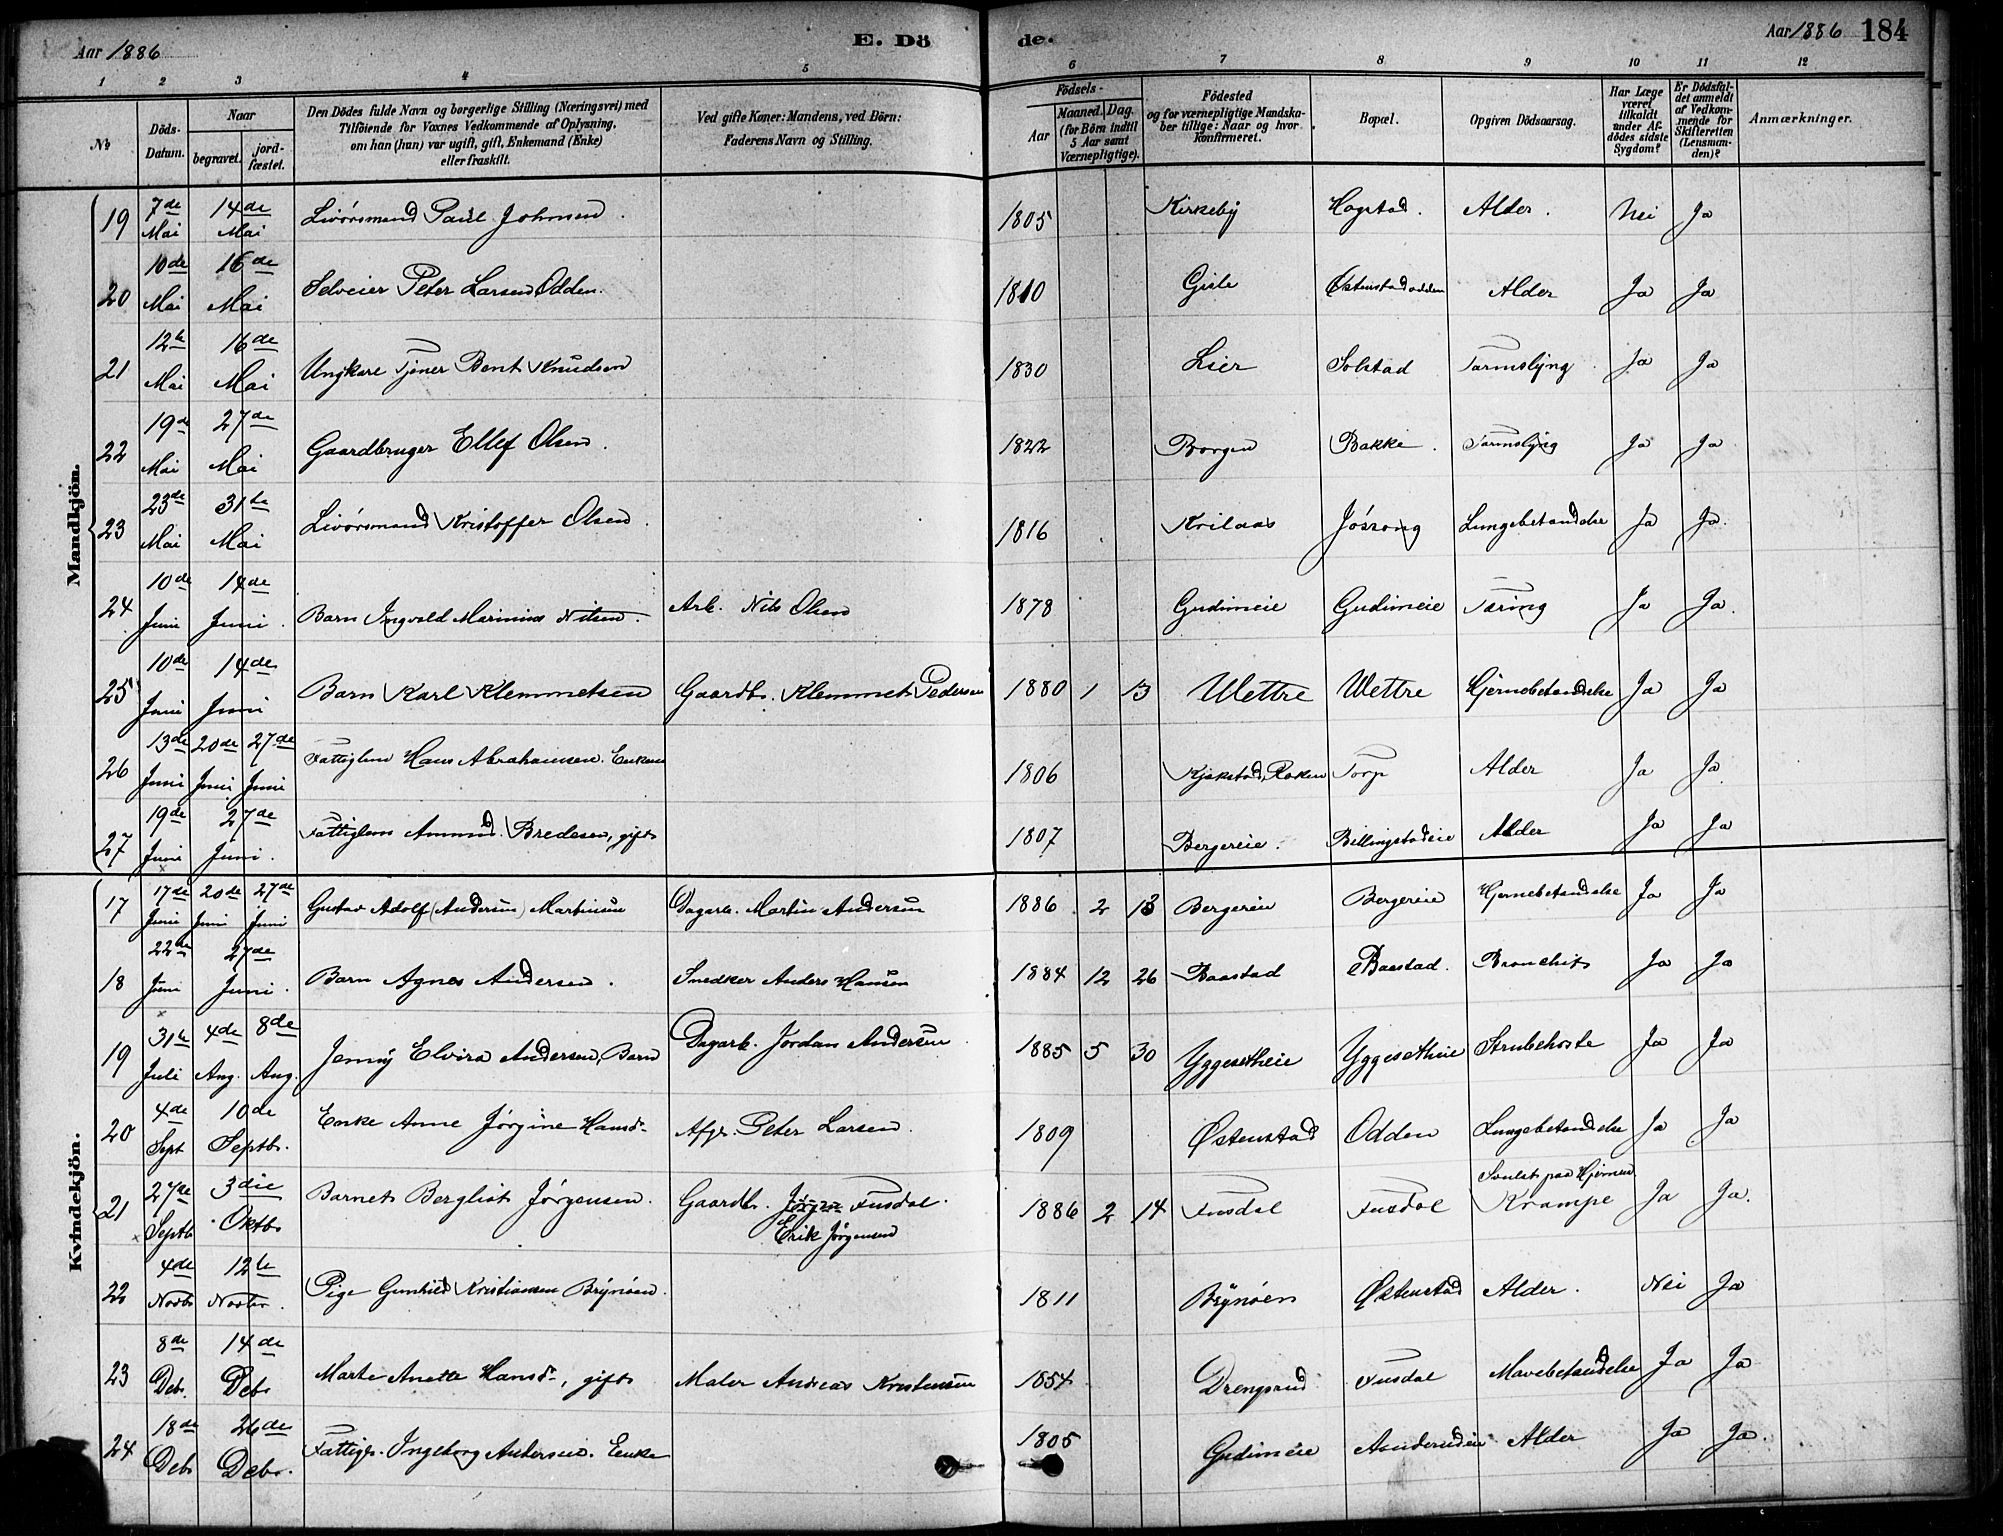 Aar 1886
E. Dö
de.
Aar 1886 184
1 2 3 4 5 6 7 8 9 10 11 12
№
Döds-Datum.
Naar
begravet.
jord-fæstet.
Den Dödes fulde Navn og borgerlige Stilling (Næringsvei) med
Tilföiende for Voxnes Vedkommende af Oplysning,
om han (hun) var ugift, gift, Enkemand (Enke)
eller fraskilt.
Ved gifte Koner: Mandens, ved Börn:
Faderens Navn og Stilling.
Födsels-
Aar
Maaned. Dag.
(for Börn indtil
5 Aar samt
Værnepligtige).
Födested
og for værnepligtige Mandska-
ber tillige: Naar og hvor
konfirmeret.
Bopæl.
Opgiven Dödsaarsag.
Har Læge
været
tilkaldt
under Af-
dödes sidste
Sygdom?
Er Dödsfal-
det anmeldt
af Vedkom-
mende for
Skifteretten
(Lensman-
den)?
Anmærkninger.
Mandkjön.
19 7de Mai 14de Mai Livörsmand Paul Johnsen. 1805 Kirkeby Hogstad. Alder. Nei Ja
20 10de Mai 16de Mai Selveier Peter Larsen Odden. 1810 Gisle Østenstadodden Alder Ja Ja
21 12te Mai 16de Mai Ungkare Tjener Bent Knudsen 1830 Lier Solstad Tarmslyng Ja Ja
22 19de Mai 27de Mai Gaardbruger Ellef Olsen. 1822 Borgen Bakke. Tarmslyng Ja Ja
23 23de Mai 31te Mai Livörsmand Kristoffer Olsen. 1816 Krilaas Jössong Lungebetændelse Ja Ja.
24 10de Juni 14de Juni. Barn Ingvald Marinius Nilsen. Arb. Nils Olsen 1878 Gudimeie Gudimeie Tæring Ja Ja.
25 10de Juni 14de Juni Barn Karl Klemmetsen Gaardb. Klemmet Pedersen 1880 1 13 Wettre Wettre Hjernebetændelse Ja Ja
26 13de Juni 20de Juni 27de Juni Fattiglem Hans Abrahamsen. Enkem 1806 Kjekstad, Røken Torp Alder Ja Ja
27 19de Juni 27de Juni. Fattiglem Amund. Bredesen, gift 1807 Bergereie. Billingstadeie Alder Ja Ja
Kvindekjön.
17 17de Juni 20de Juni 27de Juni Gustav Adolf (Andersen) Martinsen Dagarb. Martin Andersen 1886 2 13 Bergereie Bergereie Hjernebetændelse Ja Ja
18 22de Juni 27de Juni. Barn Agnes Andersen. Snedker Anders Hansen 1884 12 26 Baastad Baastad. Bronchit Ja Ja
19 31te Juli 4de Aug. 8de Aug. Jenny Elvira Andersen, Barn Dagarb. Jordan Andersen. 1885 5 30 Yggesetheie Yggesetheie Strubehoste Ja Ja
20 4de Sept 10de Septbr. Enke Anne Jørgine Hansd- Afgr. Peter Larsen. 1809 Østenstad Odden Lungebetændelse Ja Ja
21 27de Septb 3die Oktb Barnet Bergliot Jørgensen. Gaardb. Jørgen Fusdal. Erik Jørgensen 1886 2 14 Fusdal Fusdal Svulst paa Hjernen Krampe Ja Ja.
22 4de Novb 12te Novbr. Pige Gunhild Kristiansen Brynøen. 1811 Brynøen Østenstad Alder. Nei Ja
23 8de Deb. 14de Deb. Marte Anette Hansd-, gift Maler Andreas Kristensen 1854 Drengsrud Fusdal Mavebetændelse Ja Ja
24 18de Deb 26de Debr. Fattigl. Ingeborg Andersen. Enke 1805 Gudimeie Alder Ja Ja.